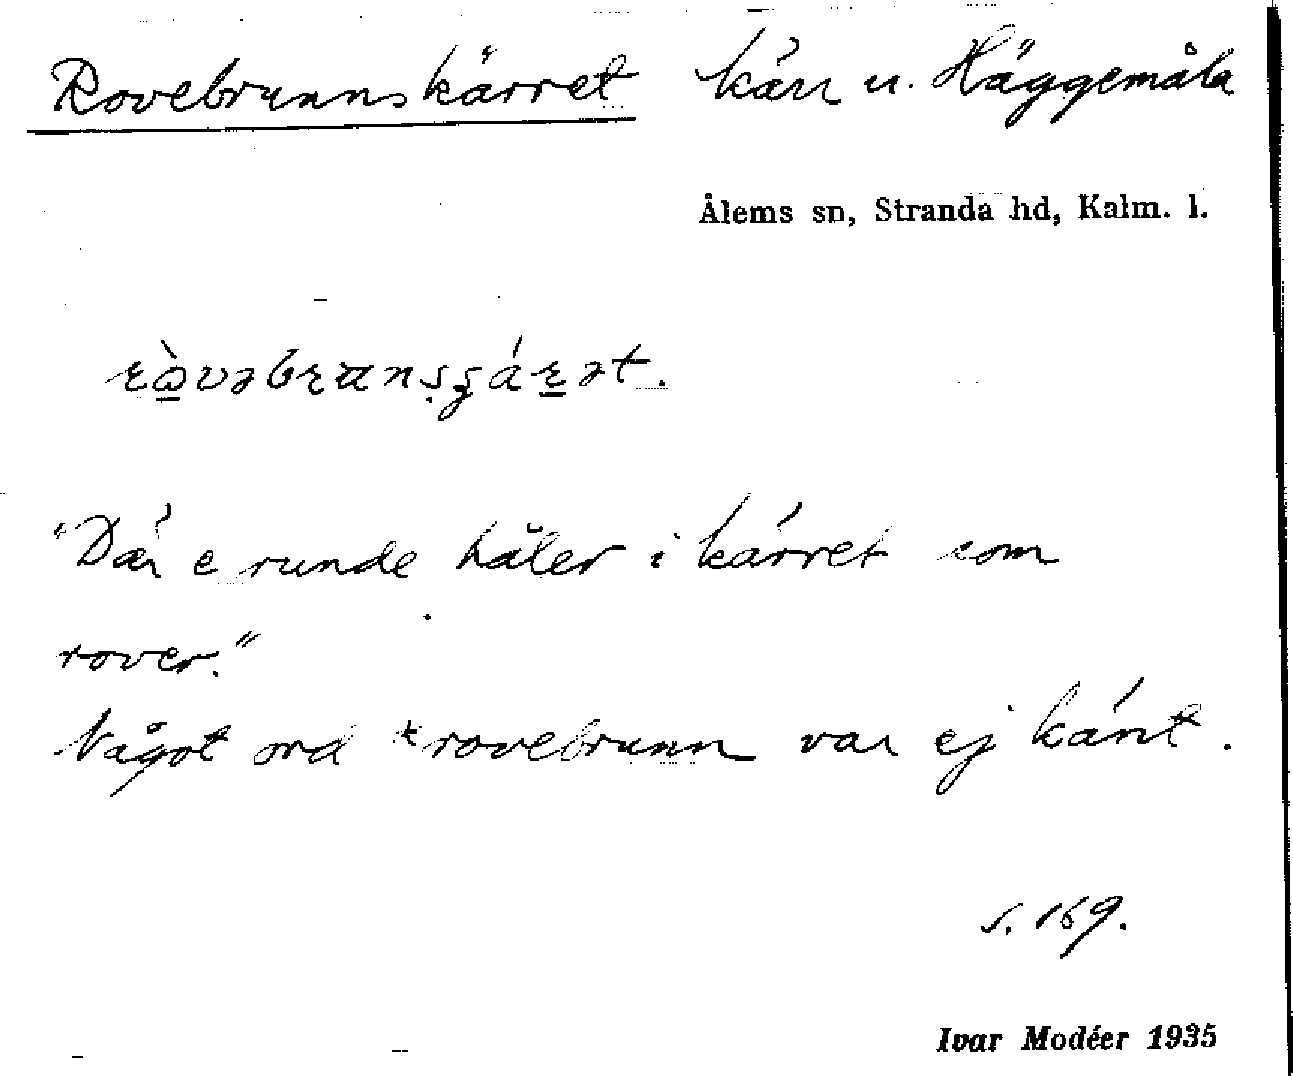 Rovebrunnskärret kärr u. Häggemåla
Ålems sn, Stranda hd, Kalm. l.
"Där e runde håler i kärret som
rover."
Något ord *rovebrunn var ej känt.
s. 169.
Ivar Modéer 1935